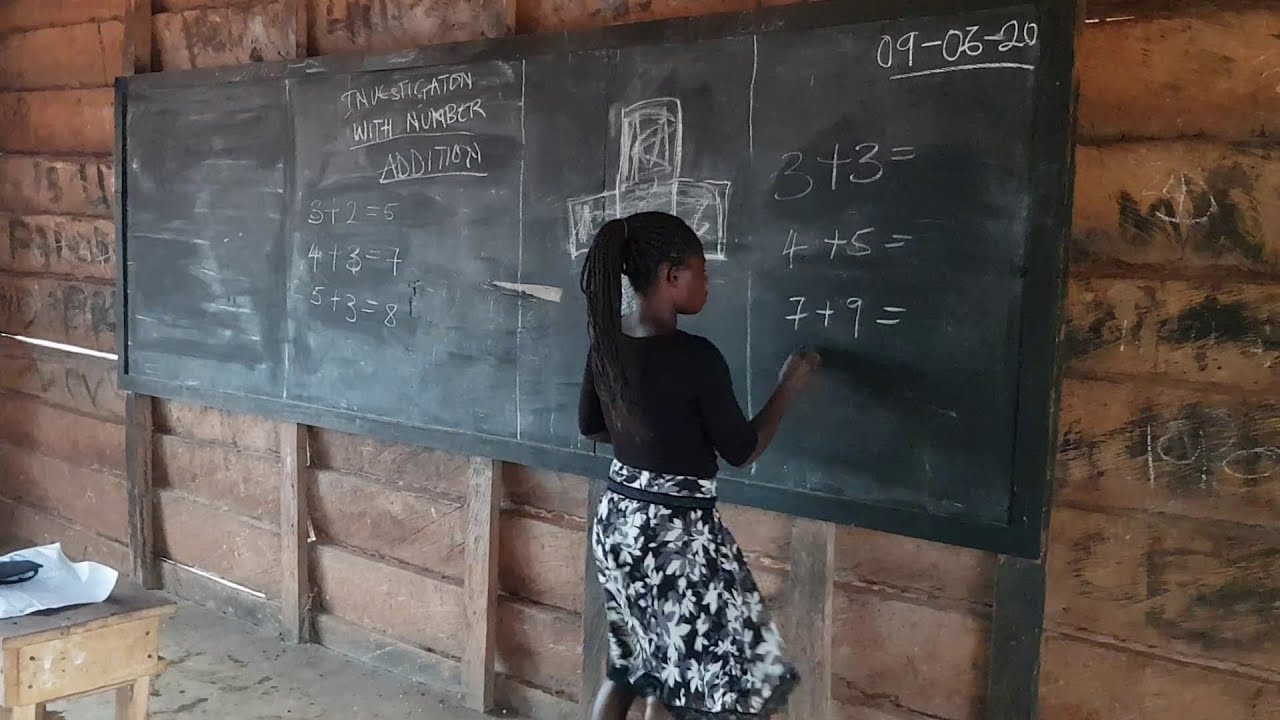 INVESTIGATON
WITH NUMBER
ADDITION
3+2=5
4+3=7
5+3=8
09-03-20
3+3=
4+5=
7+9=